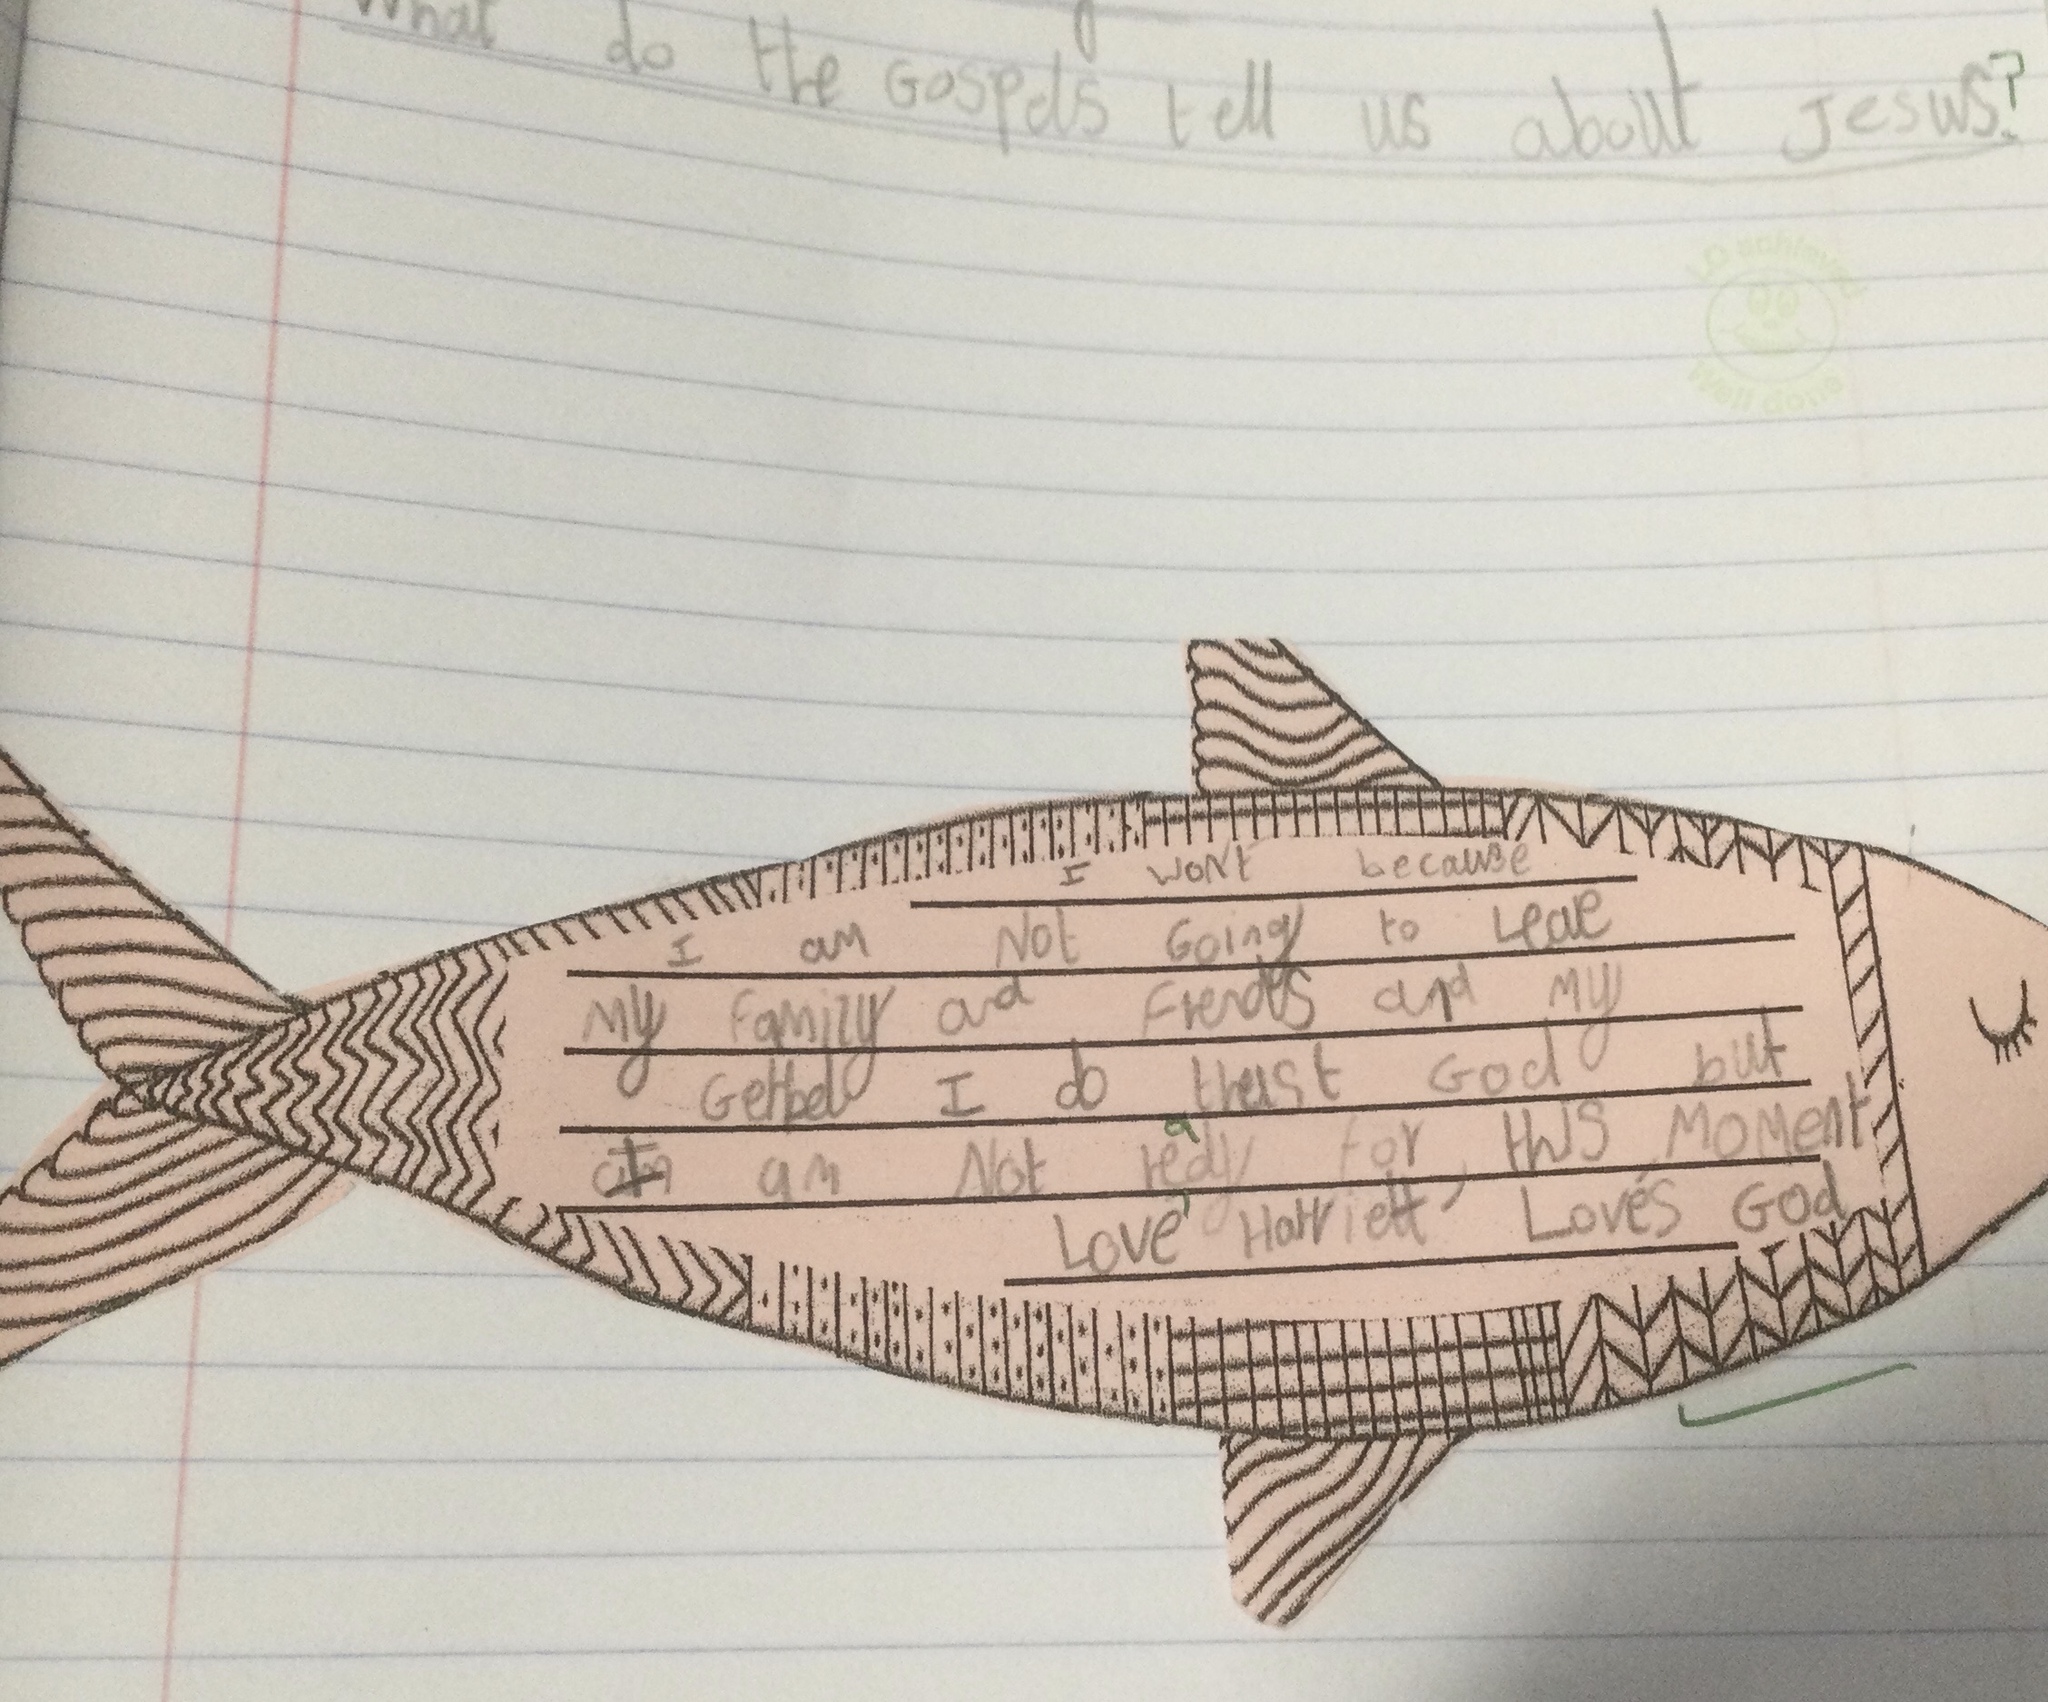 What do the Gospels tell us about Jesus?
LO achieved
Well done
I wont because
I am Not Going to Leave
My Family and Frends and My
I do thrust God but
I am Not ready for this Moment
Love, Harriett, Loves God